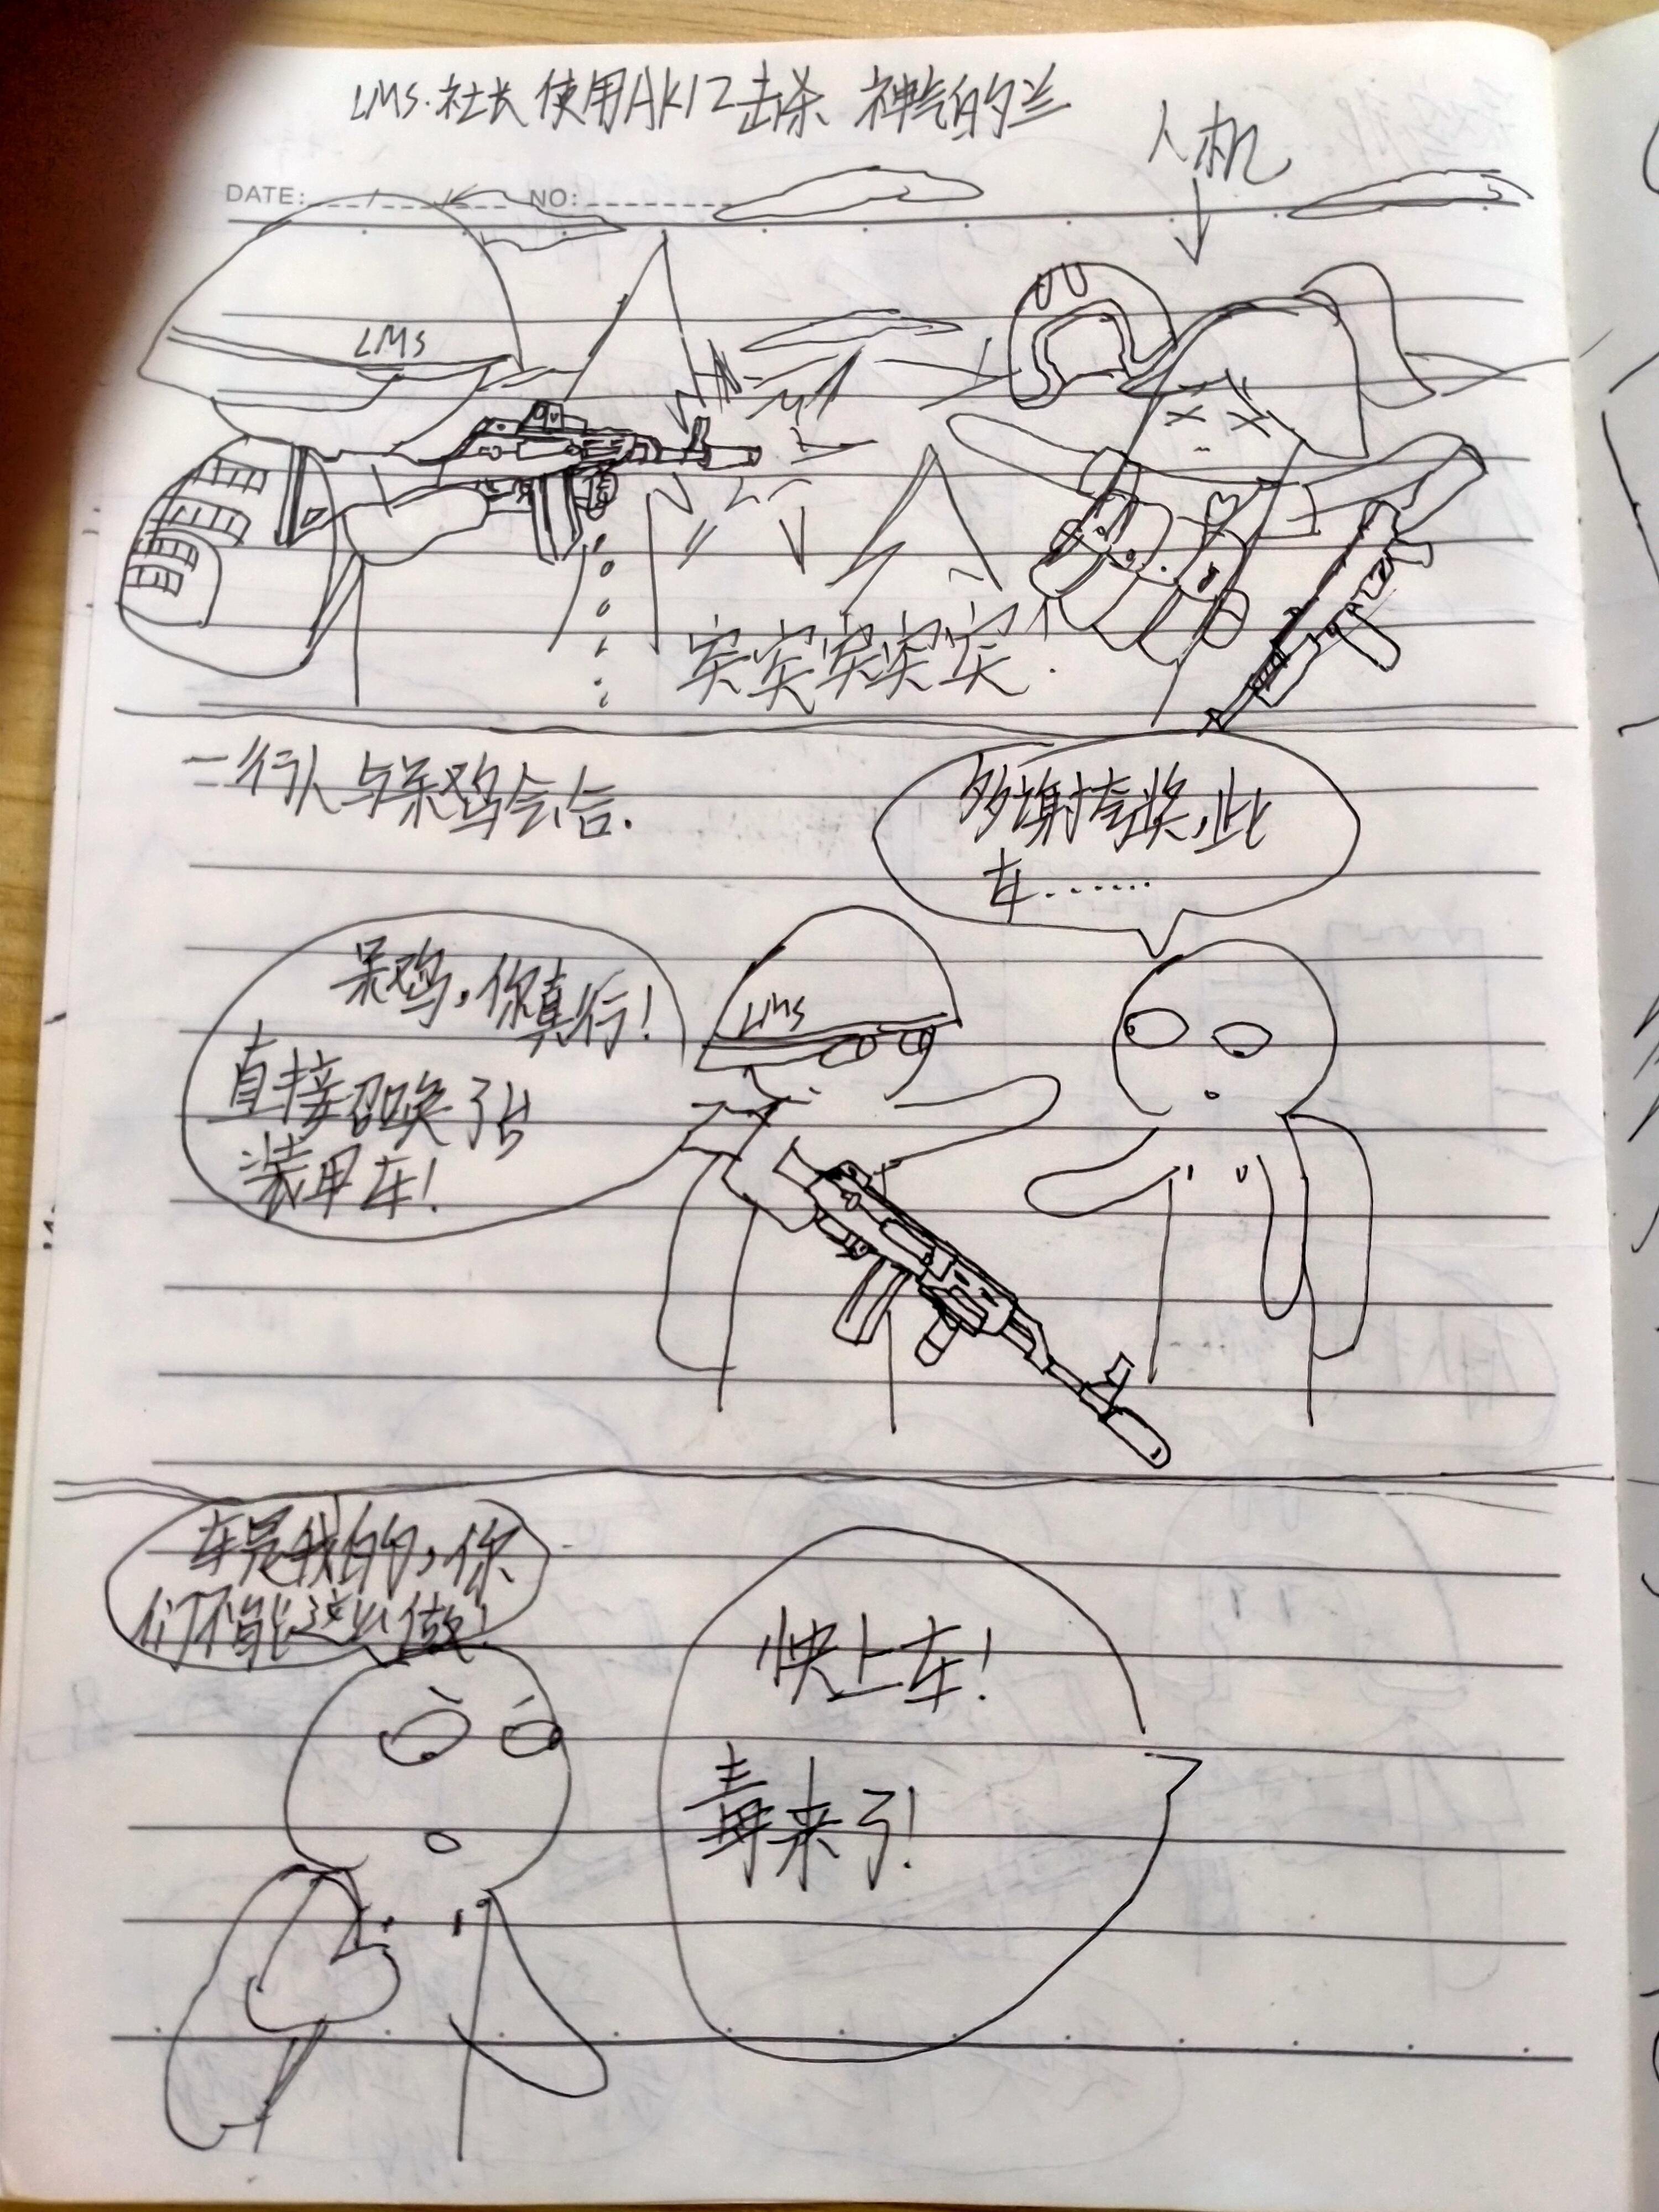 LMS.社长 使用AK12击杀 神气的兰
人机
DATE: / / NO:
LMS
突突突突突
一行人与呆鸡会合.
多谢夸奖,此
车……
呆鸡,你真行!
直接召唤了台
装甲车!
LMS
车是我的,你
们不能这么做!
快上车!
毒来了!